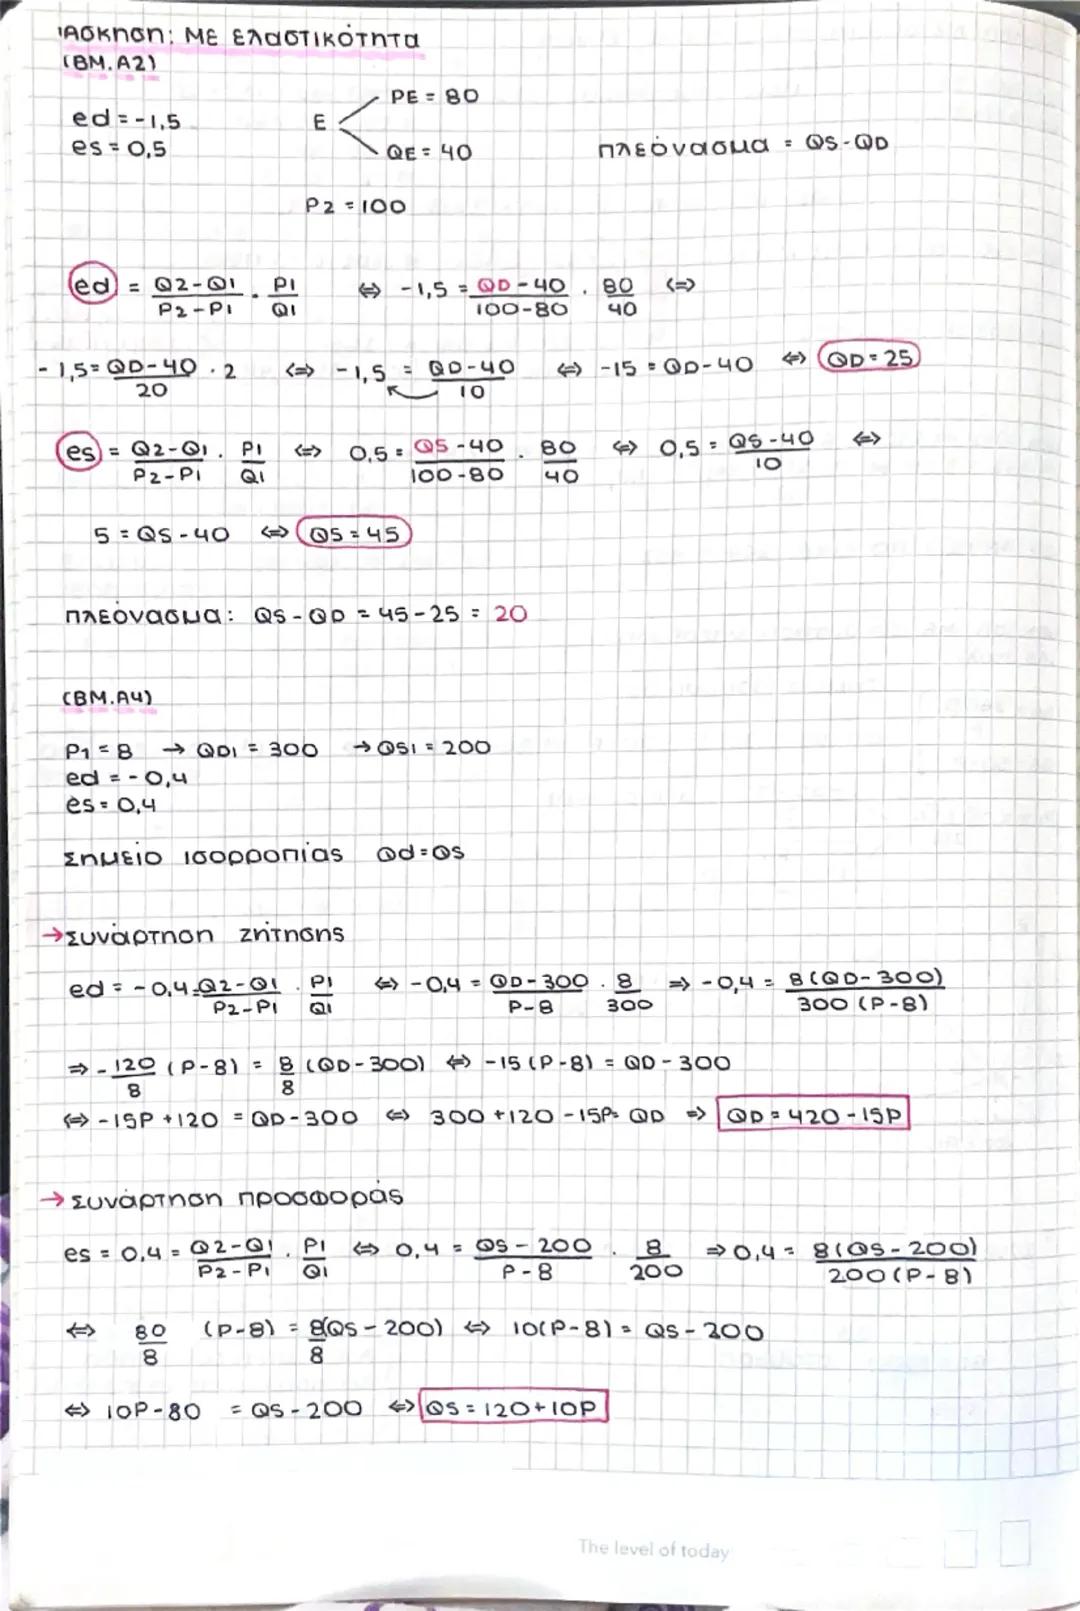 Άσκηση: ΜΕ Ελαστικότητα
(ΒΜ.Α2)
PE = 80
ed = -1,5
E
es = 0,5
QE = 40
πλεόνασμα = QS-QD
P2 = 100
ed = Q2-Q1/P2-P1 · P1/Q1 <=> -1,5 = QD-40/100-80 · 80/40 <=>
-1,5 = QD-40/20 · 2 <=> -1,5 = QD-40/10 <=> -15 = QD-40 <=> QD = 25
es = Q2-Q1/P2-P1 · P1/Q1 <=> 0,5 = QS-40/100-80 · 80/40 <=> 0,5 = QS-40/10 <=>
5 = QS-40 <=> QS = 45
πλεόνασμα: QS-QD = 45-25 = 20
(ΒΜ.Α4)
P1 = 8 → QD1 = 300 → QS1 = 200
ed = -0,4
es = 0,4
Σημείο ισορροπίας Qd=QS
→ Συνάρτηση ζήτησης
ed = -0,4 = Q2-Q1/P2-P1 · P1/Q1 <=> -0,4 = QD-300/P-8 · 8/300 => -0,4 = 8(QD-300)/300(P-8)
=> -120/8 (P-8) = 8/8 (QD-300) <=> -15(P-8) = QD-300
<=> -15P+120 = QD-300 <=> 300+120-15P = QD => QD = 420-15P
→ Συνάρτηση προσφοράς
es = 0,4 = Q2-Q1/P2-P1 · P1/Q1 <=> 0,4 = QS-200/P-8 · 8/200 => 0,4 = 8(QS-200)/200(P-8)
<=> 80/8 (P-8) = 8(QS-200)/8 <=> 10(P-8) = QS-200
<=> 10P-80 = QS-200 <=> QS = 120+10P
The level of today